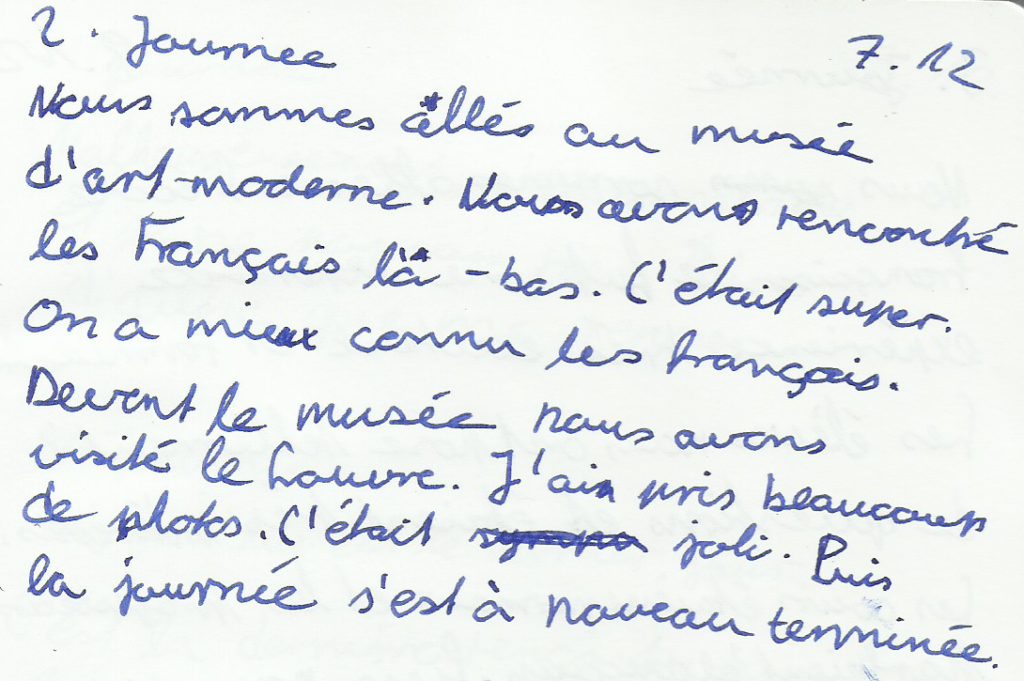 2. Journee 7.12
Nous sommes allés au musée
d'art-moderne. Nous avons rencontré
les Français là-bas. C'était super.
On a mieux connu les français.
Devant le musée nous avons
visité le Louvre. J'ai pris beaucoup
de photos. C'était joli. Puis
la journée s'est à nouveau terminée.